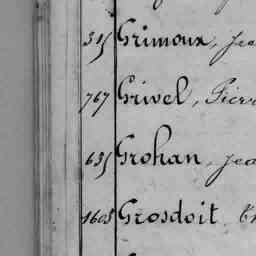 315 Grimoux, Jea
767 Grivel, Pierr
635 Grohan, Jea
1605 Grosdoit,